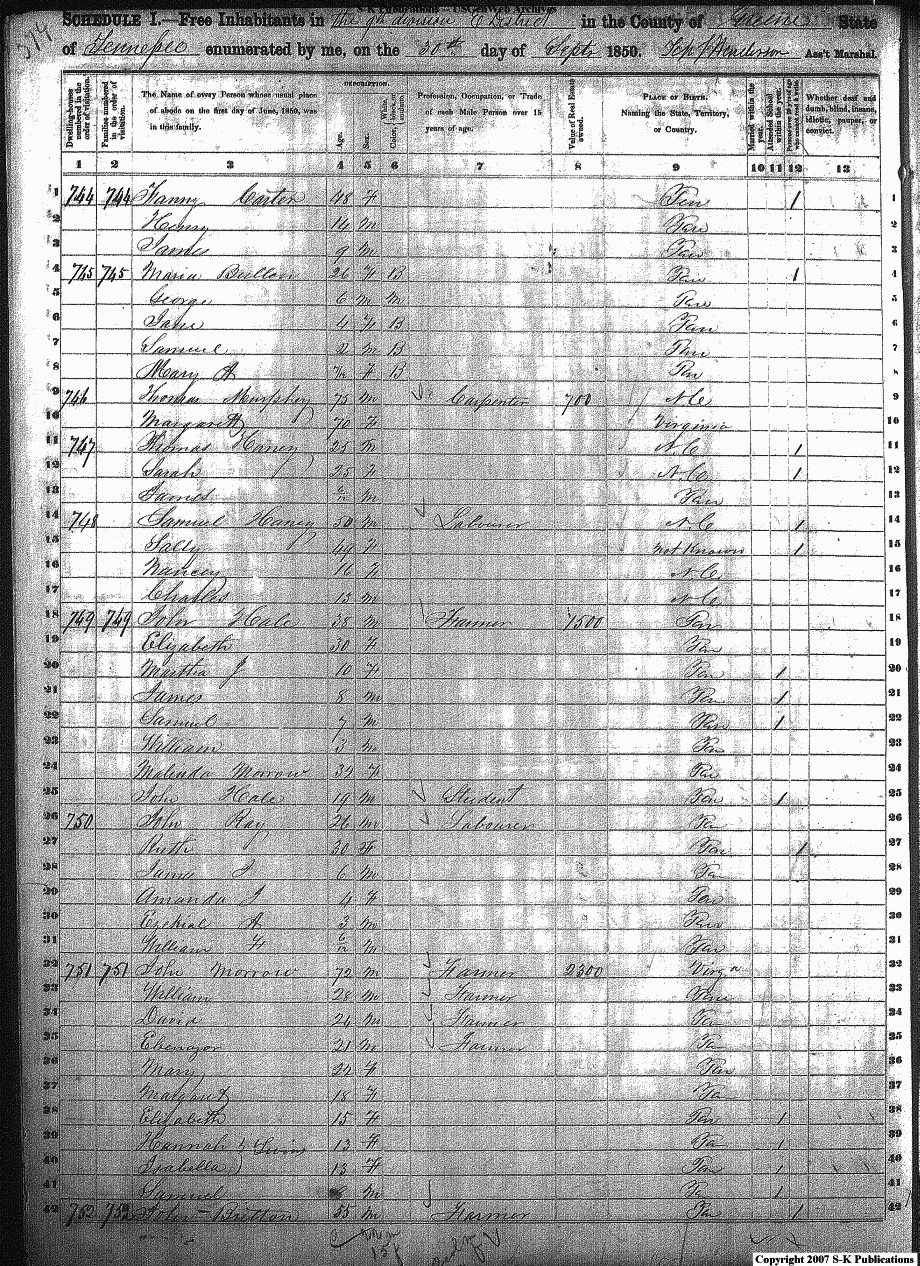 S-K Publications - USGenWeb Archives
SCHEDULE I.—Free Inhabitants in the 9th division E District in the County of Greene State
of Tennessee enumerated by me, on the 30th day of Sept 1850. Henderson Ass't Marshal.
DESCRIPTION.
Dwelling-houses numbered in the order of visitation.
Families numbered in the order of visitation.
The Name of every Person whose usual place of abode on the first day of June, 1850, was in this family.
Age.
Sex.
White, black, or mulatto.
Color
Profession, Occupation, or Trade of each Male Person over 15 years of age.
Value of Real Estate owned.
PLACE OF BIRTH. Naming the State, Territory, or Country.
Married within the year.
Attended School within the year.
Whether deaf and dumb, blind, insane, idiotic, pauper, or convict.
1 2 3 4 5 6 7 8 9 10 11 12 13
1 744 744 Fanny Carter 48 F Ten 1 1
2 Henry 14 m Ten 2
3 James 9 m Ten 3
4 745 745 Maria Bullen 26 F B Ten 1 4
5 George 6 m m Ten 5
6 Jane 4 F B Ten 6
7 Samuel 2 m B Ten 7
8 Mary A F B Ten 8
9 746 Thomas Murphey 75 m Carpenter 700 N C 9
10 Margarett 70 F Virginia 10
11 747 Thomas Haney 25 m N.C 1 11
12 Sarah 25 F N.C. 1 12
13 James m Ten 13
14 748 Samuel Haney 50 m Labourer N.C 1 14
15 Sally 49 F not Known 1 15
16 Nancey 16 F N.C 16
17 Charles 13 m N.C 17
18 749 749 John Hale 38 m Farmer 1500 Ten 18
19 Elizabeth 30 F Ten 19
20 Martha J 10 F Ten 1 20
21 James 8 m Ten 1 21
22 Samuel 7 m Ten 1 22
23 William 3 m Ten 23
24 Malinda Morrow 32 F Ten 24
25 John Hale 19 m Student Ten 1 25
26 750 John Ray 26 m Labourer Ten 26
27 Ruth 30 F Ten 1 27
28 James J 6 m Ten 28
29 Amanda J 4 F Ten 29
30 Ezekial A 3 m Ten 30
31 William F m Ten 31
32 751 751 John Morrow 72 m Farmer 2300 Virgn 32
33 William 28 m Farmer Ten 33
34 David 24 m Farmer Ten 34
35 Ebenezor 21 m Farmer Ten 35
36 Mary 22 F Ten 36
37 Margaret 18 F Ten 37
38 Elizabeth 15 F Ten 1 38
39 Hannah } Twins 13 F Ten 1 39
40 Isabella } 13 F Ten 1 40
41 Samuel m Ten 1 41
42 752 752 John Britton 35 m Farmer Ten 1 42
Copyright 2007 S-K Publications